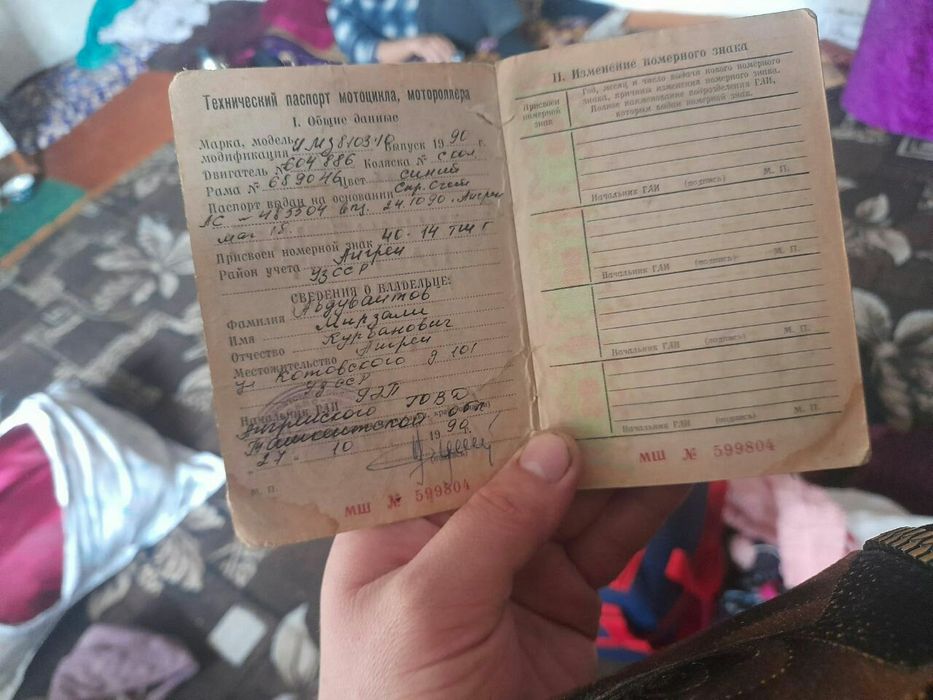 Технический паспорт мотоцикла, мотороллера
I. Общие данные
Марка, модель,
модификация ИМЗ 810310 Выпуск 1990 г.
Двигатель № 604886 Коляска №
Рама № 689046 Цвет синий
Паспорт выдан на основании Спр. Счёт
АС - 483504 24.10.90. Ангрен
маг 15
Присвоен номерной знак 40-14 тш г
Район учета Ангрен
УзССР
СВЕДЕНИЯ О ВЛАДЕЛЬЦЕ:
Фамилия Абдуваитов
Имя Мирзали
Отчество Курбанович
Местожительство Ангрен
ул Котовского д 101
УзССР
Начальник ГАИ
Ангренского ГОВД
Ташкентской обл
27 - 10 1990 г.
(подпись)
М. П.
МШ № 599804
II. Изменение номерного знака
Присвоен номерной знак
Год, месяц и число выдачи нового номерного
знака, причина изменения номерного знака.
Полное наименование подразделения ГАИ,
которым выдан номерной знак.
Начальник ГАИ (подпись) М. П.
Начальник ГАИ (подпись) М. П.
Начальник ГАИ (подпись) М. П.
Начальник ГАИ (подпись) М. П.
МШ № 599804